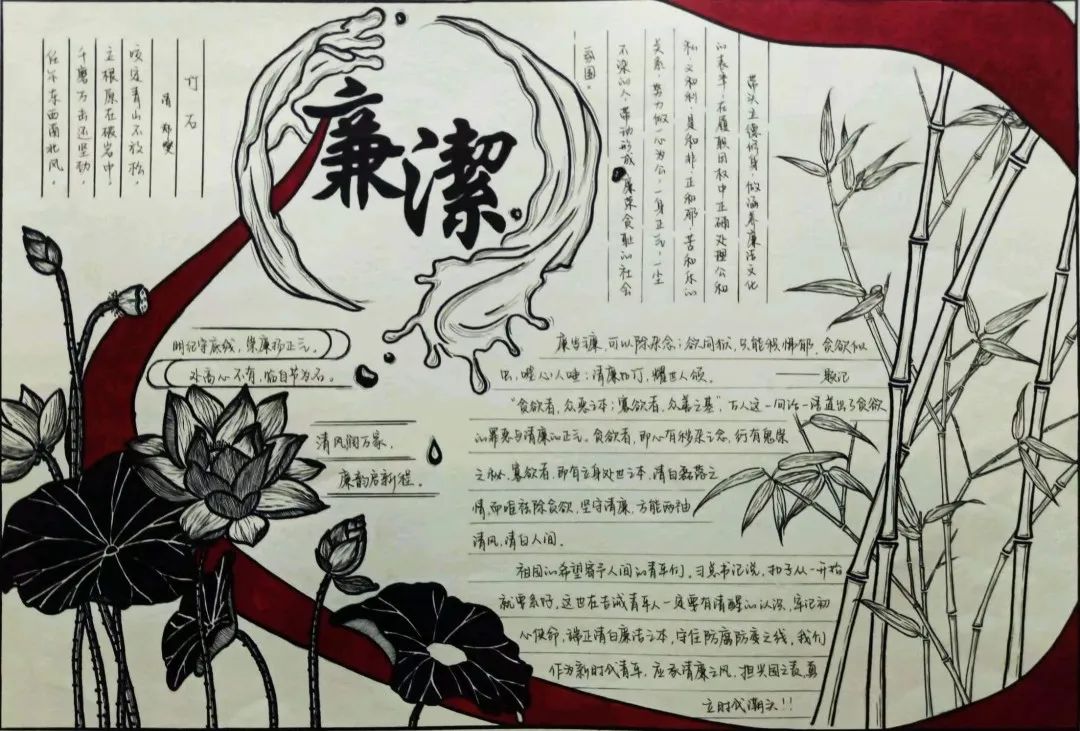 竹石
清 郑燮
咬定青山不放松，
立根原在破岩中。
千磨万击还坚劲，
任尔东西南北风。
廉潔
带头立德修身，做涵养廉洁文化
的表率，在履职用权中正确处理公和
私、义和利、是和非、正和邪、苦和乐的
关系，努力做一心为公、一身正气、一尘
不染的人，带动形成廉荣贪耻的社会
氛围。
明纪守底线，崇廉扬正气。
外高心不有，临自节为石。
清风润万家，
廉韵启新程。
廉能清，可以除杂念；欲同狱，只能候悌郁。贪欲似
虫，噬心人唾；清廉如灯，耀世人颂。
——题记
“贪欲者，众恶之本；寡欲者，众善之基”，古人这一句话一语道出了贪欲
的罪恶与清廉的正气。贪欲者，即心有秽杂之念，行有鬼祟
之秘，寡欲者，即有立身处世之本，清白磊落之
情，而唯祛除贪欲，坚守清廉，方能两袖
清风，清白人间。
祖国的希望寄予人间的青年们，习总书记说，扣子从一开始
就要系好，这也在告诫青年人一定要有清醒的认识，牢记初
心使命，端正清白廉洁之本，守住防腐防变之线，我们
作为新时代青年，应承清廉之风，担兴国之责，勇
立时代潮头！！